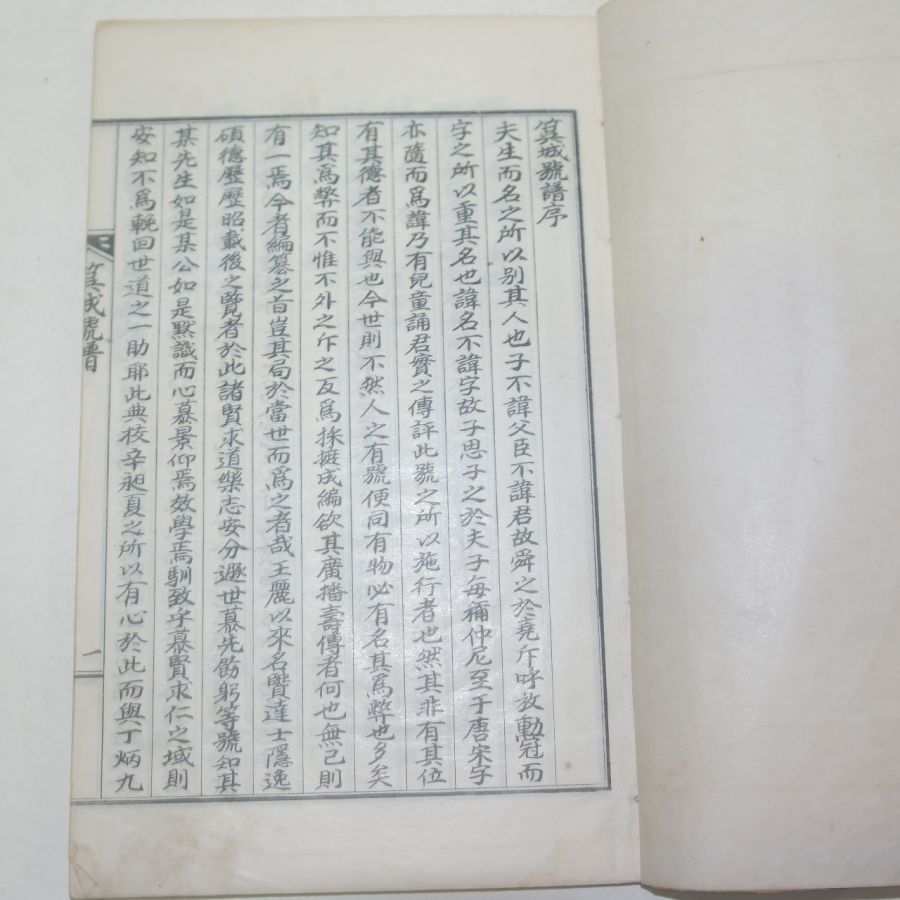 箕城號譜序
夫生而名之所以別其人也子不諱父臣不諱君故舜之於堯斥呼放勳冠而
字之所以重其名也諱名不諱字故子思子之於夫子每稱仲尼至于唐宋字
亦隨而爲諱乃有兒童誦君實之傳評此號之所以施行者也然其非有其位
有其德者不能與也今世則不然人之有號便同有物必有名其爲弊也多矣
知其爲弊而不惟不外之斥之反爲採摭成編欲其廣播壽傳者何也無已則
有一焉今者編纂之旨豈其局於當世而爲之者哉王麗以來名賢達士隱逸
碩德歷歷昭載後之覽者於此諸賢求道樂志安分遯世慕先飭躬等號知其
某先生如是某公如是黙識而心慕景仰焉效學焉馴致乎慕賢求仁之域則
安知不爲輓回世道之一助耶此典校辛昶夏之所以有心於此而與丁炳九
箕城號譜
一